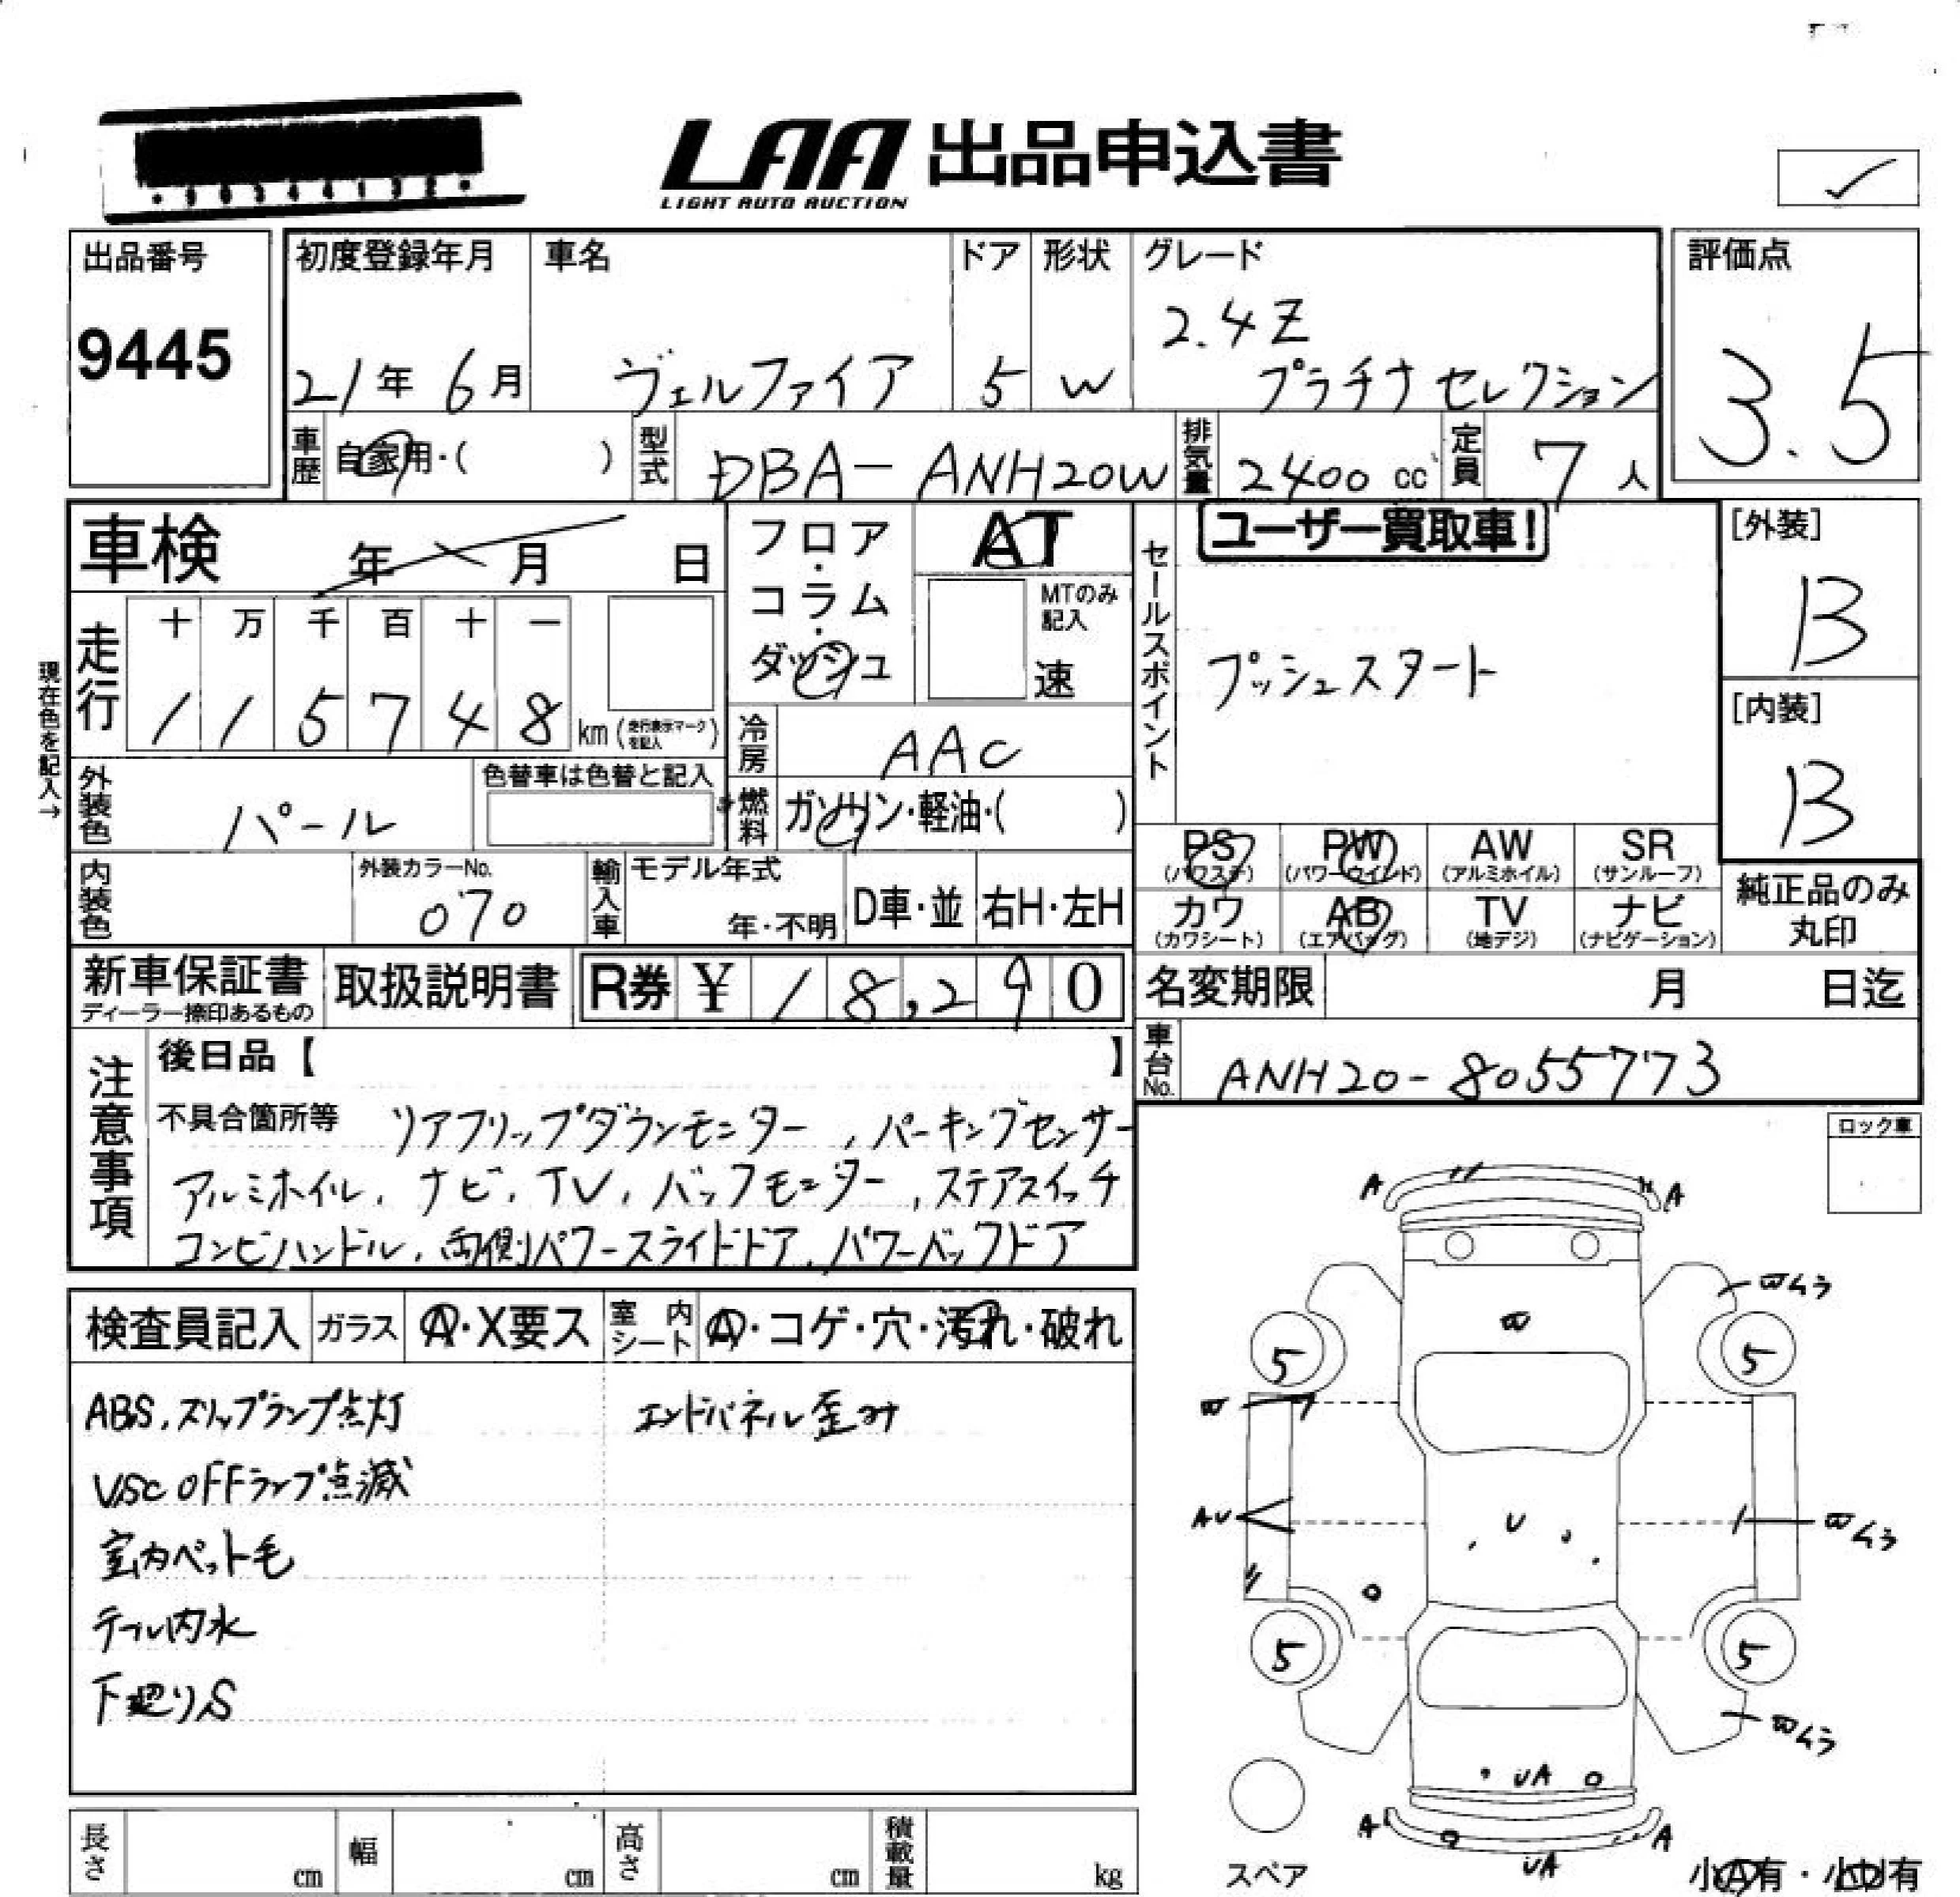 LAA 出品申込書
LIGHT AUTO AUCTION
出品番号
9445
初度登録年月
21年 6月
車名
ヴェルファイア
ドア
5
形状
W
グレード
2.4Z
プラチナセレクション
評価点
3.5
車歴
自家用・( )
型式
DBA-ANH20W
排気量
2400 cc
定員
7人
車検 年 月 日
フロア・コラム・ダッシュ
AT
MTのみ記入
速
セールスポイント
ユーザー買取車!
プッシュスタート
[外装]
B
[内装]
B
現在色を記入→
走行
十 万 千 百 十 一
1 1 5 7 4 8 km (走行表示マークを記入)
冷房
AAC
外装色
パール
色替車は色替と記入
燃料
ガソリン・軽油・( )
内装色
外装カラーNo.
070
輸入車
モデル年式
年・不明
D車・並
右H・左H
PS
(パワステ)
PW
(パワーウインド)
AW
(アルミホイル)
SR
(サンルーフ)
カワ
(カワシート)
AB
(エアバッグ)
TV
(地デジ)
ナビ
(ナビゲーション)
純正品のみ
丸印
新車保証書
ディーラー捺印あるもの
取扱説明書
R券 ¥ 18,290
名変期限 月 日迄
車台No.
ANH20-8055773
注意事項
後日品【 】
不具合箇所等 リアフリップダウンモニター, パーキングセンサー
アルミホイル, ナビ, TV, バックモニター, ステアスイッチ
コンビハンドル, 両側パワースライドドア, パワーバックドア
ロック車
検査員記入
ガラス
A・X要ス
室内シート
A・コゲ・穴・汚れ・破れ
ABS, スリップランプ点灯
VSC OFFランプ点滅
室内ペット毛
テール内水
下廻りS
エンドパネル歪み
A
A
W
Wムラ
5
5
W
AU
U
Wムラ
5
5
Wムラ
UA
A
A
UA
スペア
小A有・小U有
長さ cm
幅 cm
高さ cm
積載量 kg